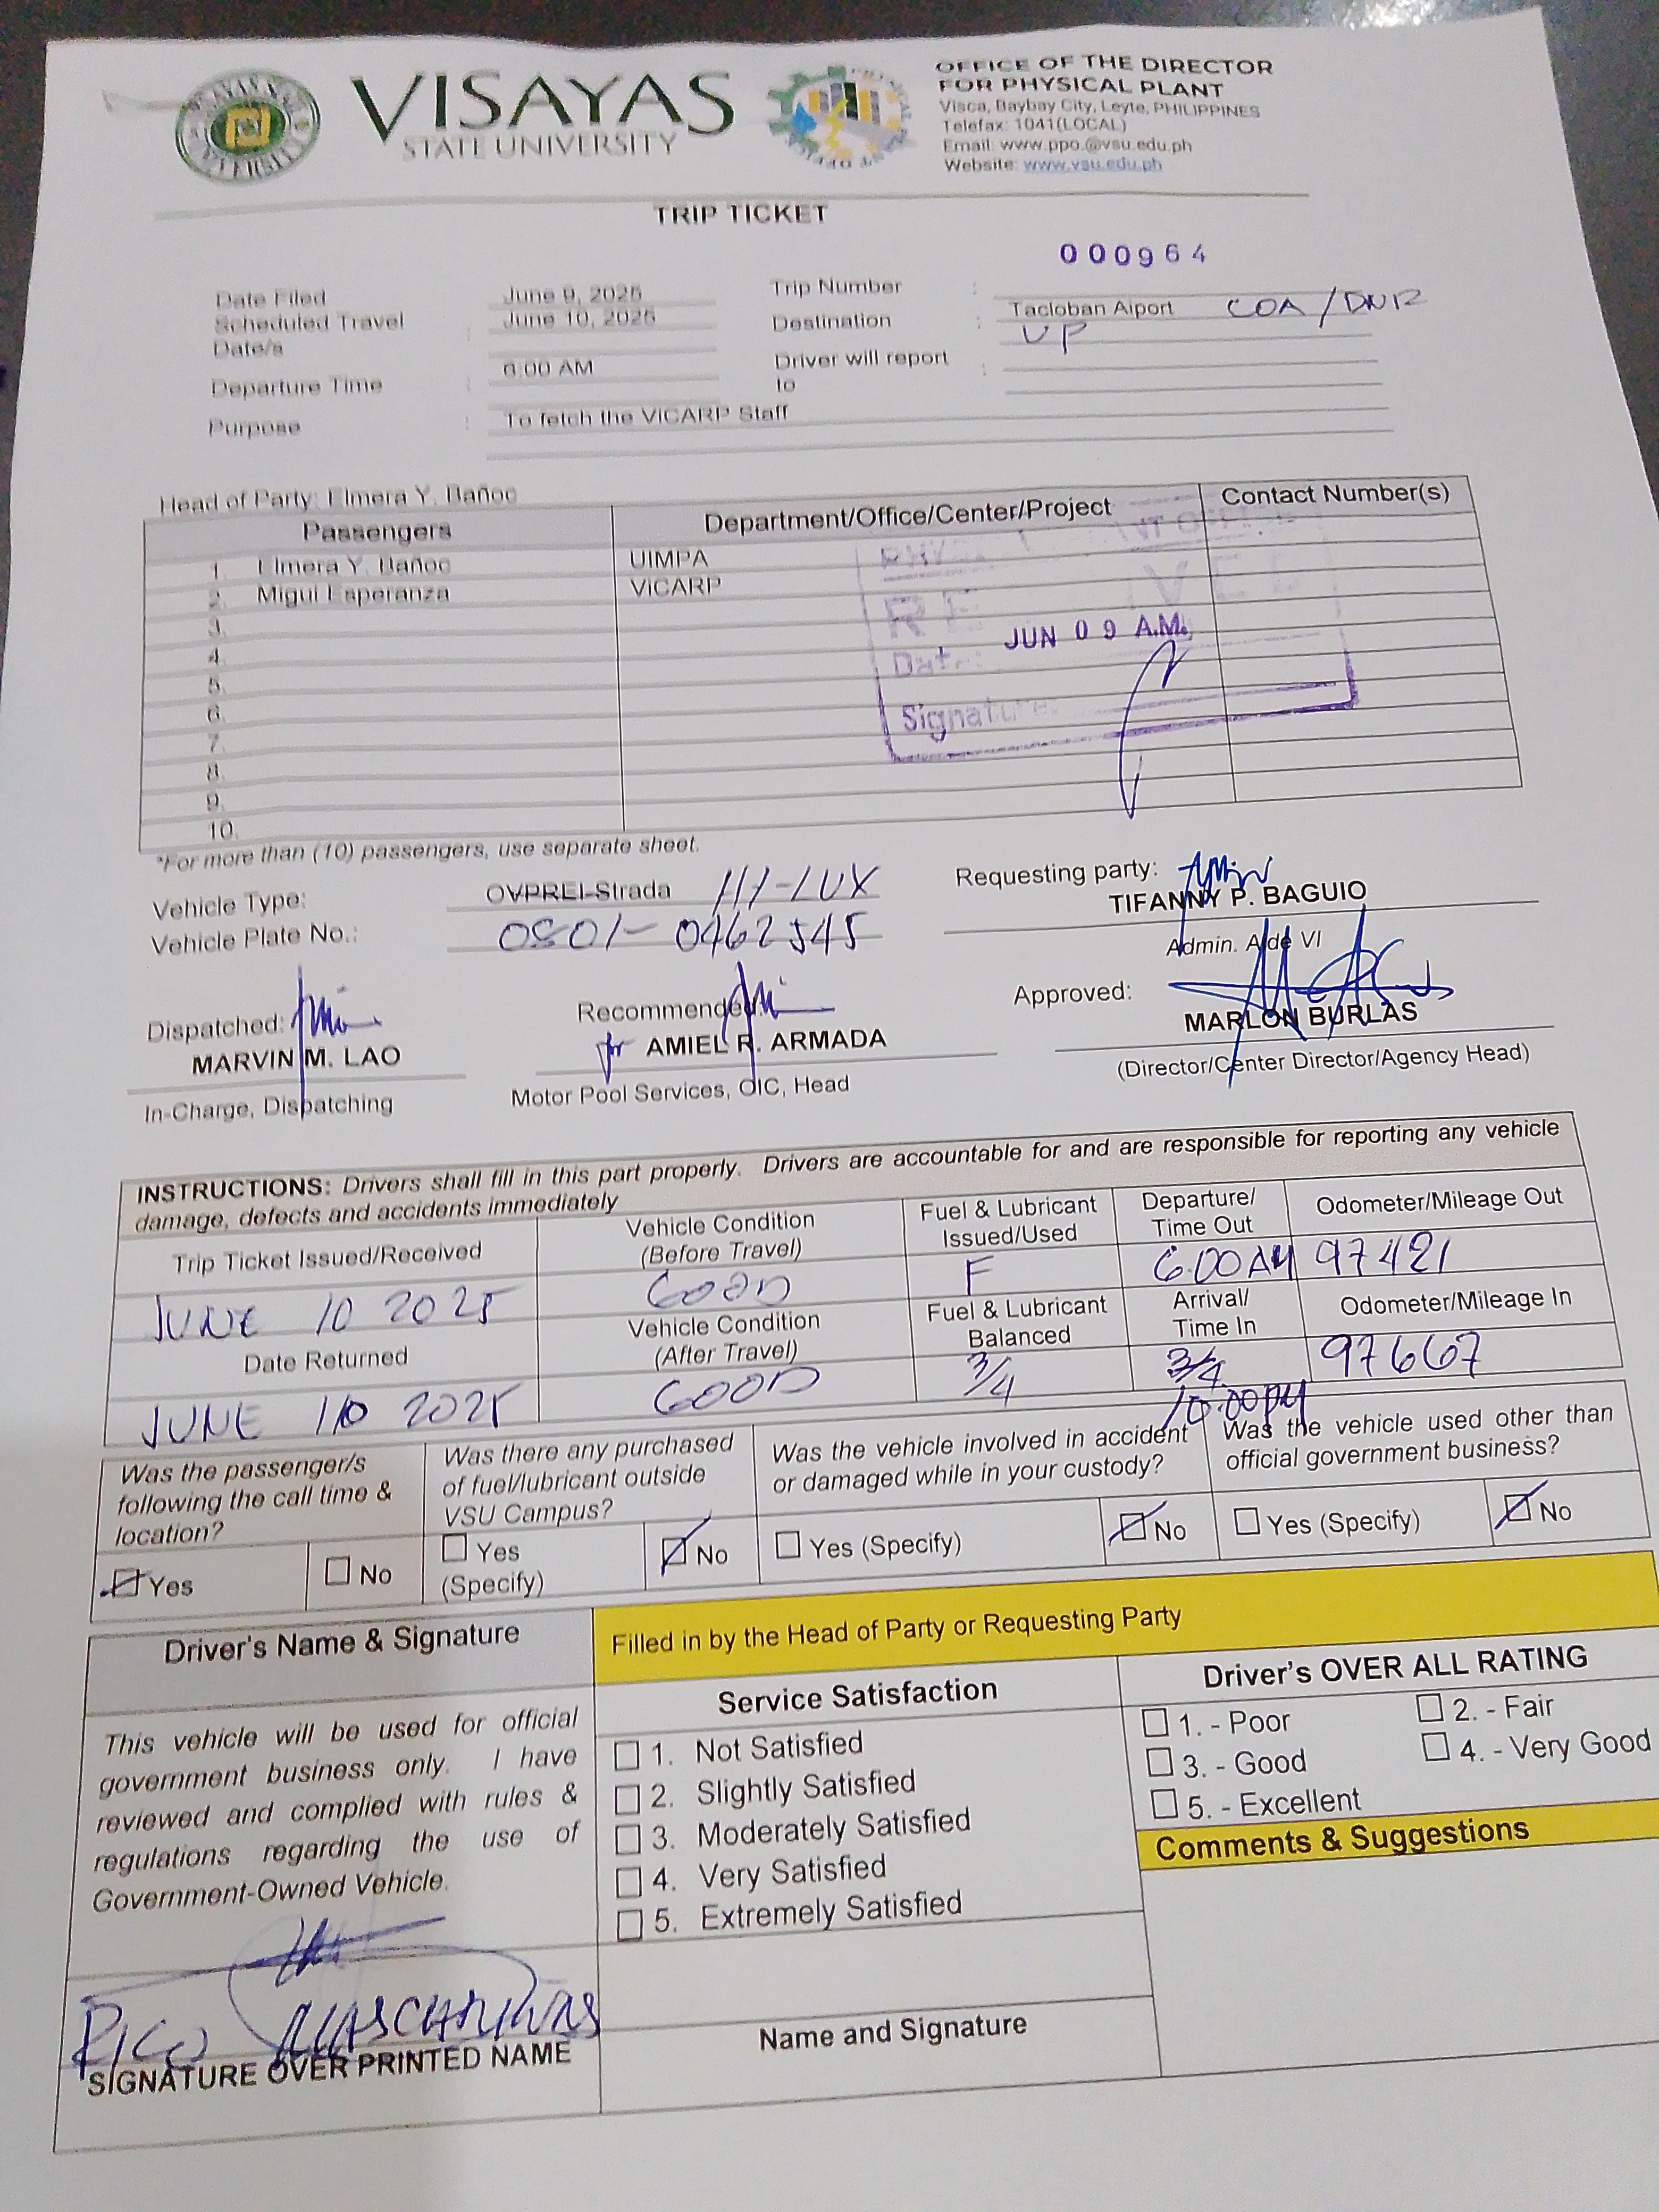 VISAYAS
STATE UNIVERSITY
OFFICE OF THE DIRECTOR
FOR PHYSICAL PLANT
Visca, Baybay City, Leyte, PHILIPPINES
Telefax: 1041(LOCAL)
Email: www.ppo.@vsu.edu.ph
Website: www.vsu.edu.ph
TRIP TICKET
000964
Date Filed June 9, 2025 Trip Number :
Scheduled Travel Date/s : June 10, 2025 Destination : Tacloban Aiport COA/DNR
UP
Departure Time : 6:00 AM Driver will report to :
Purpose : To fetch the ViCARP Staff
Head of Party: Elmera Y. Bañoc
Passengers Department/Office/Center/Project Contact Number(s)
1. Elmera Y. Bañoc UIMPA
2. Migui Esperanza ViCARP
3.
4.
5.
6.
7.
8.
9.
10.
JUN 09 A.M.
Date:
Signature:
*For more than (10) passengers, use separate sheet.
Vehicle Type: OVPREI-Strada HI-LUX
Vehicle Plate No.: 0S01-0462545
Requesting party:
TIFANNY P. BAGUIO
Admin. Aide VI
Dispatched:
MARVIN M. LAO
In-Charge, Dispatching
Recommended:
for AMIEL R. ARMADA
Motor Pool Services, OIC, Head
Approved:
MARLON BURLAS
(Director/Center Director/Agency Head)
INSTRUCTIONS: Drivers shall fill in this part properly. Drivers are accountable for and are responsible for reporting any vehicle
damage, defects and accidents immediately
Trip Ticket Issued/Received Vehicle Condition (Before Travel) Fuel & Lubricant Issued/Used Departure/ Time Out Odometer/Mileage Out
JUNE 10 2025 GOOD F 6:00 AM 97421
Date Returned Vehicle Condition (After Travel) Fuel & Lubricant Balanced Arrival/ Time In Odometer/Mileage In
JUNE 10 2025 GOOD 3/4 3/4 97667
10:00 PM
Was the passenger/s
following the call time &
location?
Yes No
Was there any purchased
of fuel/lubricant outside
VSU Campus?
Yes (Specify) No
Was the vehicle involved in accident
or damaged while in your custody?
Yes (Specify) No
Was the vehicle used other than
official government business?
Yes (Specify) No
Driver's Name & Signature
This vehicle will be used for official
government business only. I have
reviewed and complied with rules &
regulations regarding the use of
Government-Owned Vehicle.
RICO
SIGNATURE OVER PRINTED NAME
Filled in by the Head of Party or Requesting Party
Service Satisfaction
1. Not Satisfied
2. Slightly Satisfied
3. Moderately Satisfied
4. Very Satisfied
5. Extremely Satisfied
Name and Signature
Driver's OVER ALL RATING
1. - Poor 2. - Fair
3. - Good 4. - Very Good
5. - Excellent
Comments & Suggestions